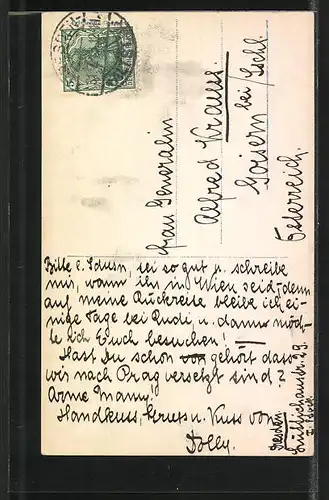 Frau Generalin
Alfred Krauss.
Goisern bei/Ischl.
Österreich.
Bitte, sei so gut u. schreibe
mir, wann ihr in Wien seid, denn
auf meine Rückreise bleibe ich ei-
nige Tage bei Rudi, u. dann möch-
te ich Euch besuchen!
Hast Du schon gehört dass
wir nach Prag versetzt sind?
Arme Mamy!
Handkuss, Gruss u. Kuss von
Dolly.
Dresden